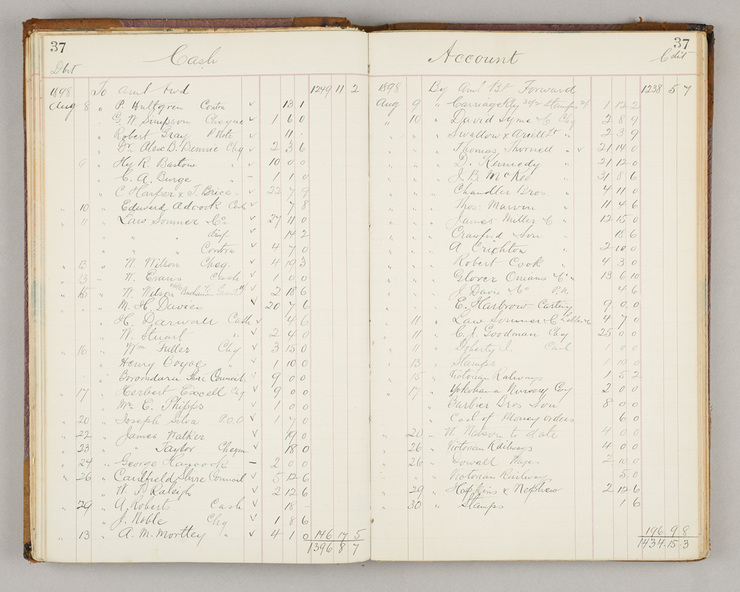 37
Cash
Dbt
1898 To Amt fwd 1249 11 2
Aug 8 " P. Hultgren Contra 13 1
G. W. Simpson Cheque 1 6 0
Robert Gray P Note 11 -
Dr. Alex B. Bennie Chq 2 3 6
9 Hy R. Barlow 10 0 0
" C. A. Burge - 1 1 0
" C Harper & T. Brice 22 7 9
10 " Edward Adcock Cash 7 8
11 " Law Somner & Co 27 11 0
" " " 14 2
" " Contra 4 7 0
13 " W. Wilson Chq. 4 10 3
13 " W. Evans Cash 1 0 0
15 " W Wilson 2 18 6
" M. H. Davies 20 7 6
" H. Darwall Cash 4 6
" W. Stuart " 2 4 0
16 " Wm Fuller Chq 3 15 0
" Henry " 1 10 0
" Boroondara Shire Council 9 0 0
17 " Herbert Chq 9 0 0
" Mr C. Phipps 1 0 0
20 " Joseph Silva P.O.O
22 " James Walker 19 0
23 " Taylor Cheque 18 0
24 " George - 2 0 0
26 " Caulfield Shire Council 5 12 6
" W. P. Raleigh 2 12 6
29 " A. Robert Cash 18 -
" J. Noble Chq 1 8 6
13 " A. M. Mortley " 4 1 0 146 17 5
1396 8 7
37
Account
Cdit
1898 By Amt Bt Forward 1238 5 7
Aug 9 " Carriage Rly Stamps 1 12 2
" 10 " David Syme & Co Chq 2 8 9
" Swallow & Ariell 2 3 9
" Thomas Thornell " 21 14 0
" D. Kennedy " 21 12 0
" J. B. McKee " 31 8 6
" Chandler Bros " 4 11 0
" Thos. Marvin " 11 4 6
" James Miller & C " 12 15 0
" Crawford & Son 18 6
" A Crighton 2 10 0
" Robert Cook " 4 3 0
" Glover Onians & Co " 13 6 10
" J Davis & Co 4 6
" E. Harbrow Cartage 9 0 0
11 " Law Somner & C 4 7 0
11 " C. A. Goodman Chq 25 0 0
11 " Cash 1 0 0
13 " Stamps 10 0
15 " Victorian Railways 1 5 2
17 " Yokohama Nursery Coy 2 0 0
" Barbier Bros Son 8 0 0
" Cost of Money orders 6 0
20 " W. Watson to date 4 0 0
26 " Victorian Railways 4 0 0
26 " Wages 2 10 0
" Victorian Railways 5 0
29 " Hopkins & Nephew 2 12 6
30 " Stamps 1 6
196 9 8
1434 15 3